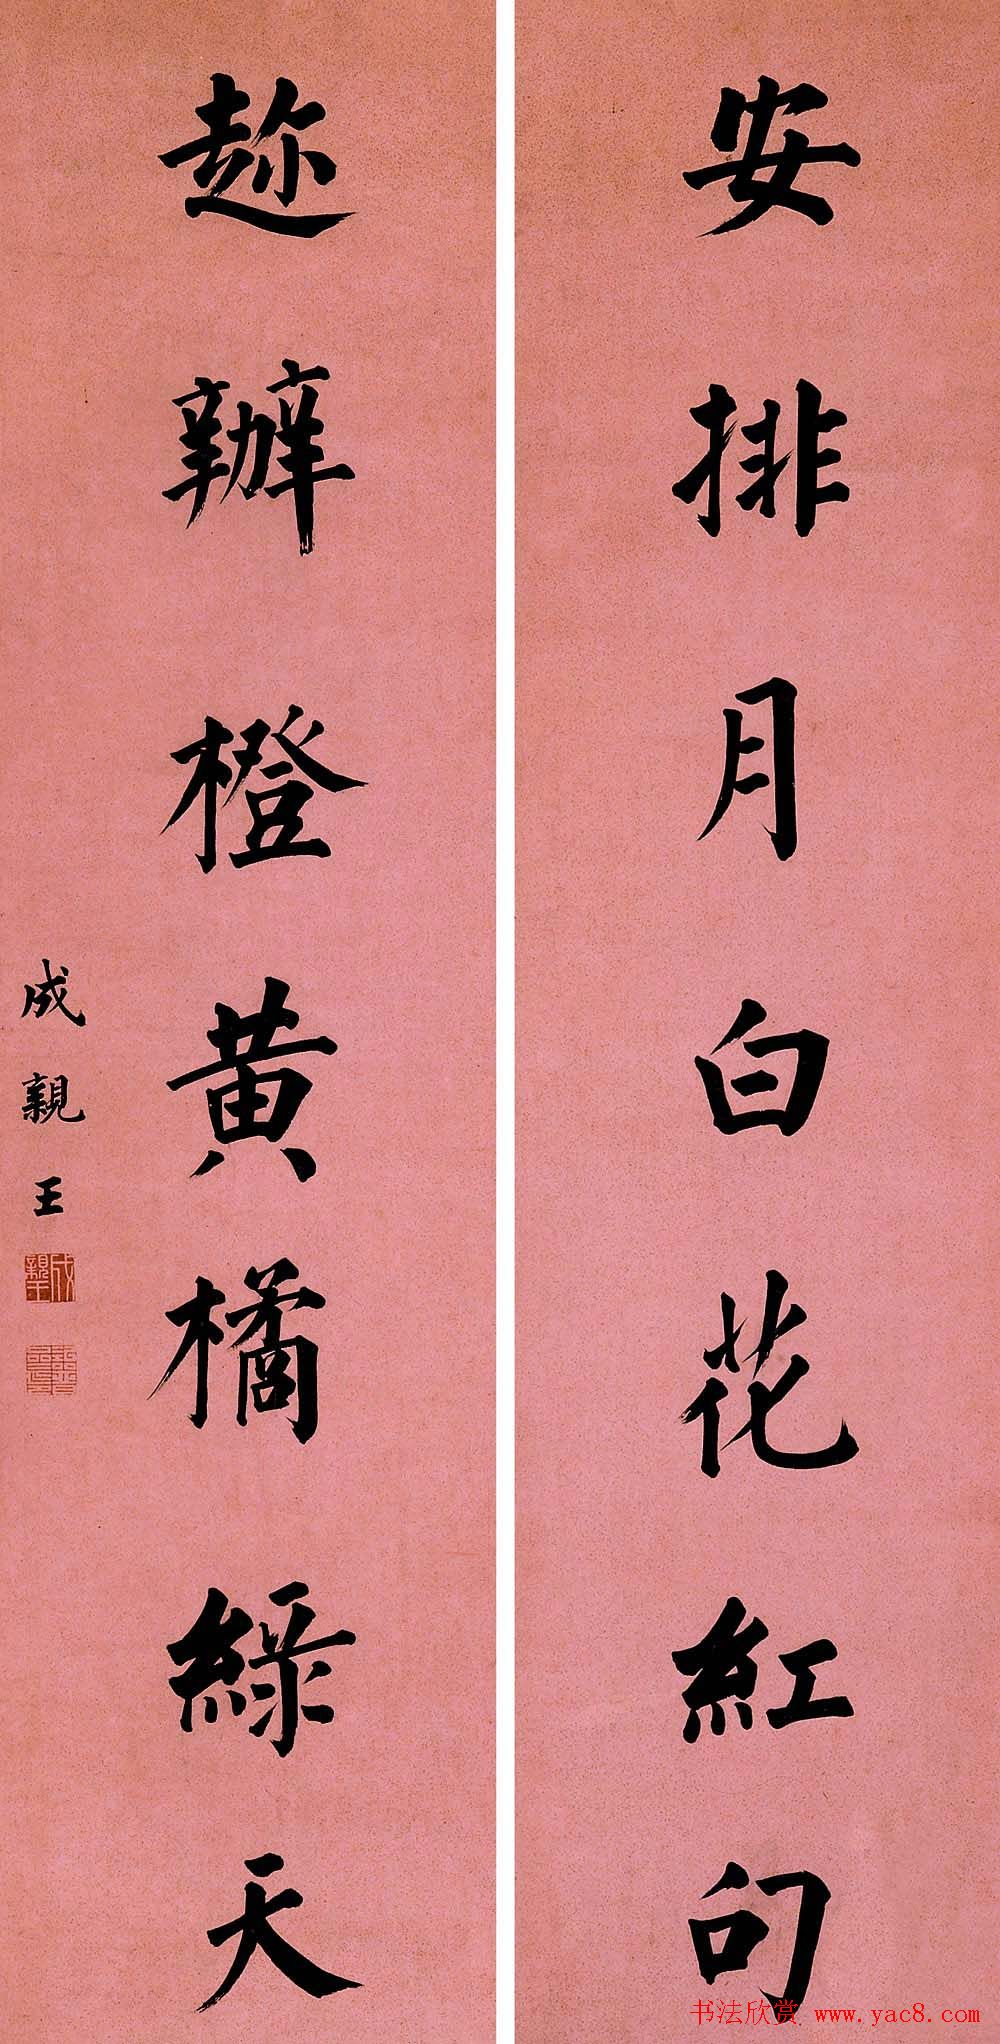 安排月白花紅句
趂辦橙黃橘綠天
成親王
成親王
书法欣赏 www.yac8.com